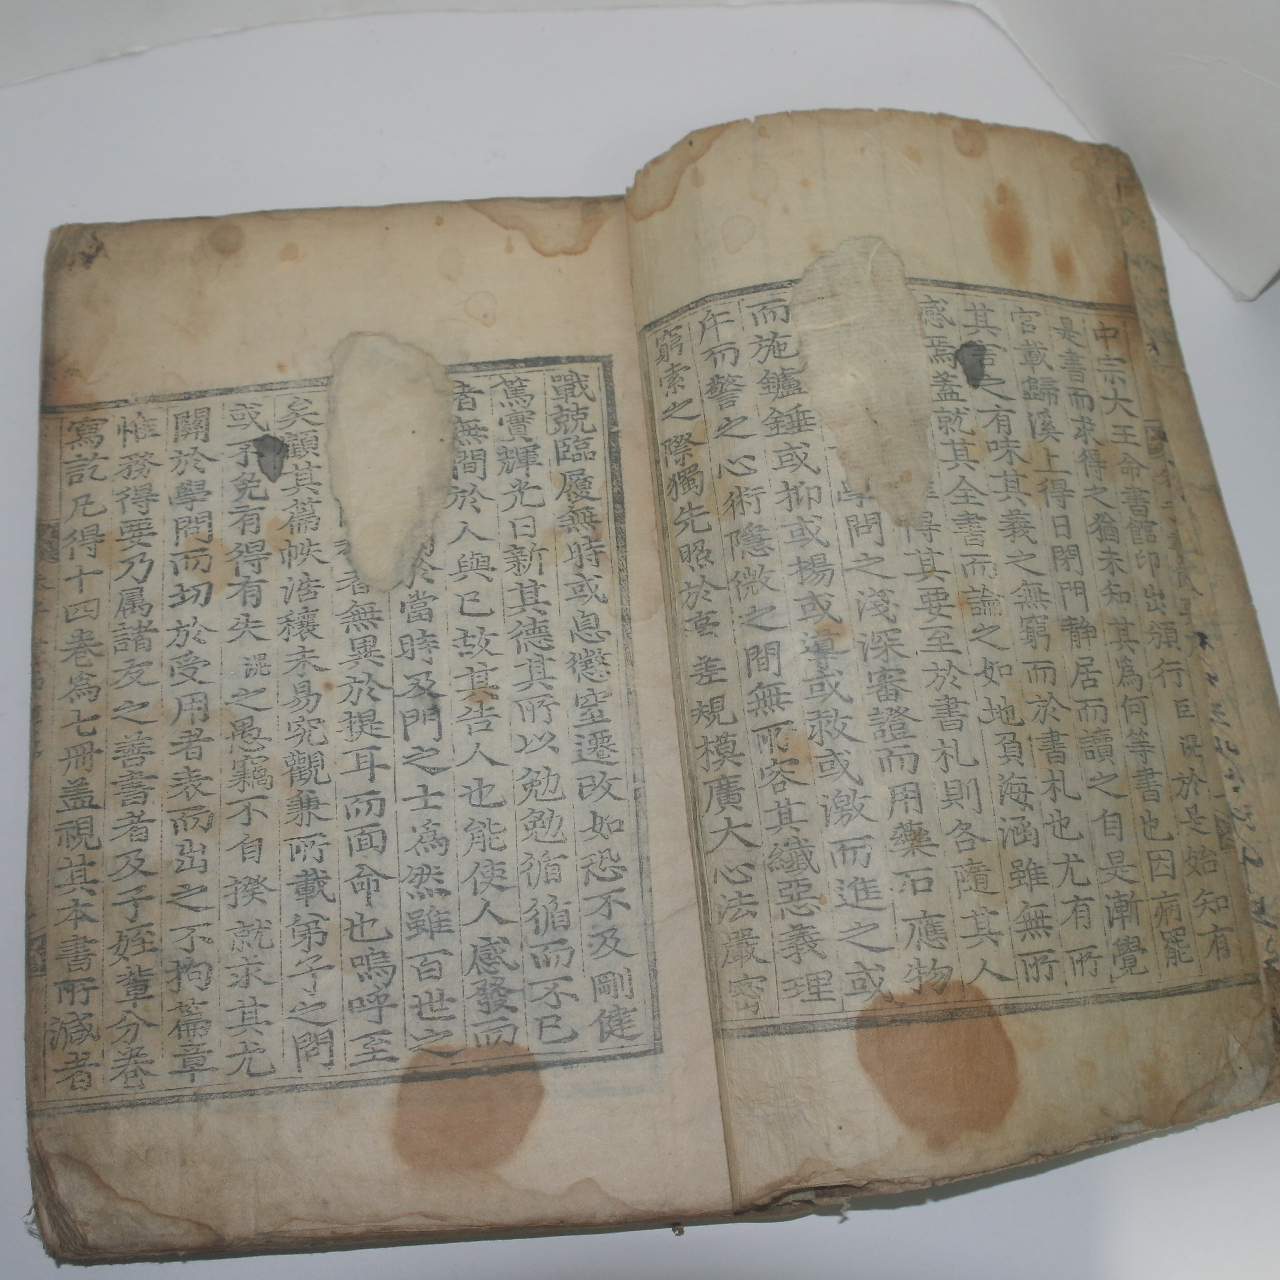 中宗大王命書館印出頒行臣滉於是始知有
是書而求得之猶未知其爲何等書也因病罷
言載歸溪上得日閉門靜居而讀之自是漸覺
其言之有味其義之無窮而於書札也尤有所
感焉盖就其全書而論之如地負海涵雖無所
得其要至於書札則各隨其人
學問之淺深審證而用藥石應物
而施鑪錘或抑或揚或導或救或激而進之或
斥而警之心術隱微之間無所容其纖惡義理
窮索之際獨先照於毫差規模廣大心法嚴密
戰兢臨履無時或息懲窒遷改如恐不及剛健
篤實輝光日新其德其所以勉勉循循而不已
者無間於人與己故其告人也能使人感發而
於當時及門之士爲然雖百世之
者無異於提耳而面命也嗚呼至
矣顧其篇帙浩穰未易究觀兼所載弟子之問
或不免有得有失滉之愚竊不自揆就求其尤
關於學問而切於受用者表而出之不拘篇章
惟務得要乃属諸友之善書者及子姪輩分卷
寫訖凡得十四卷爲七冊盖視其本書所減者